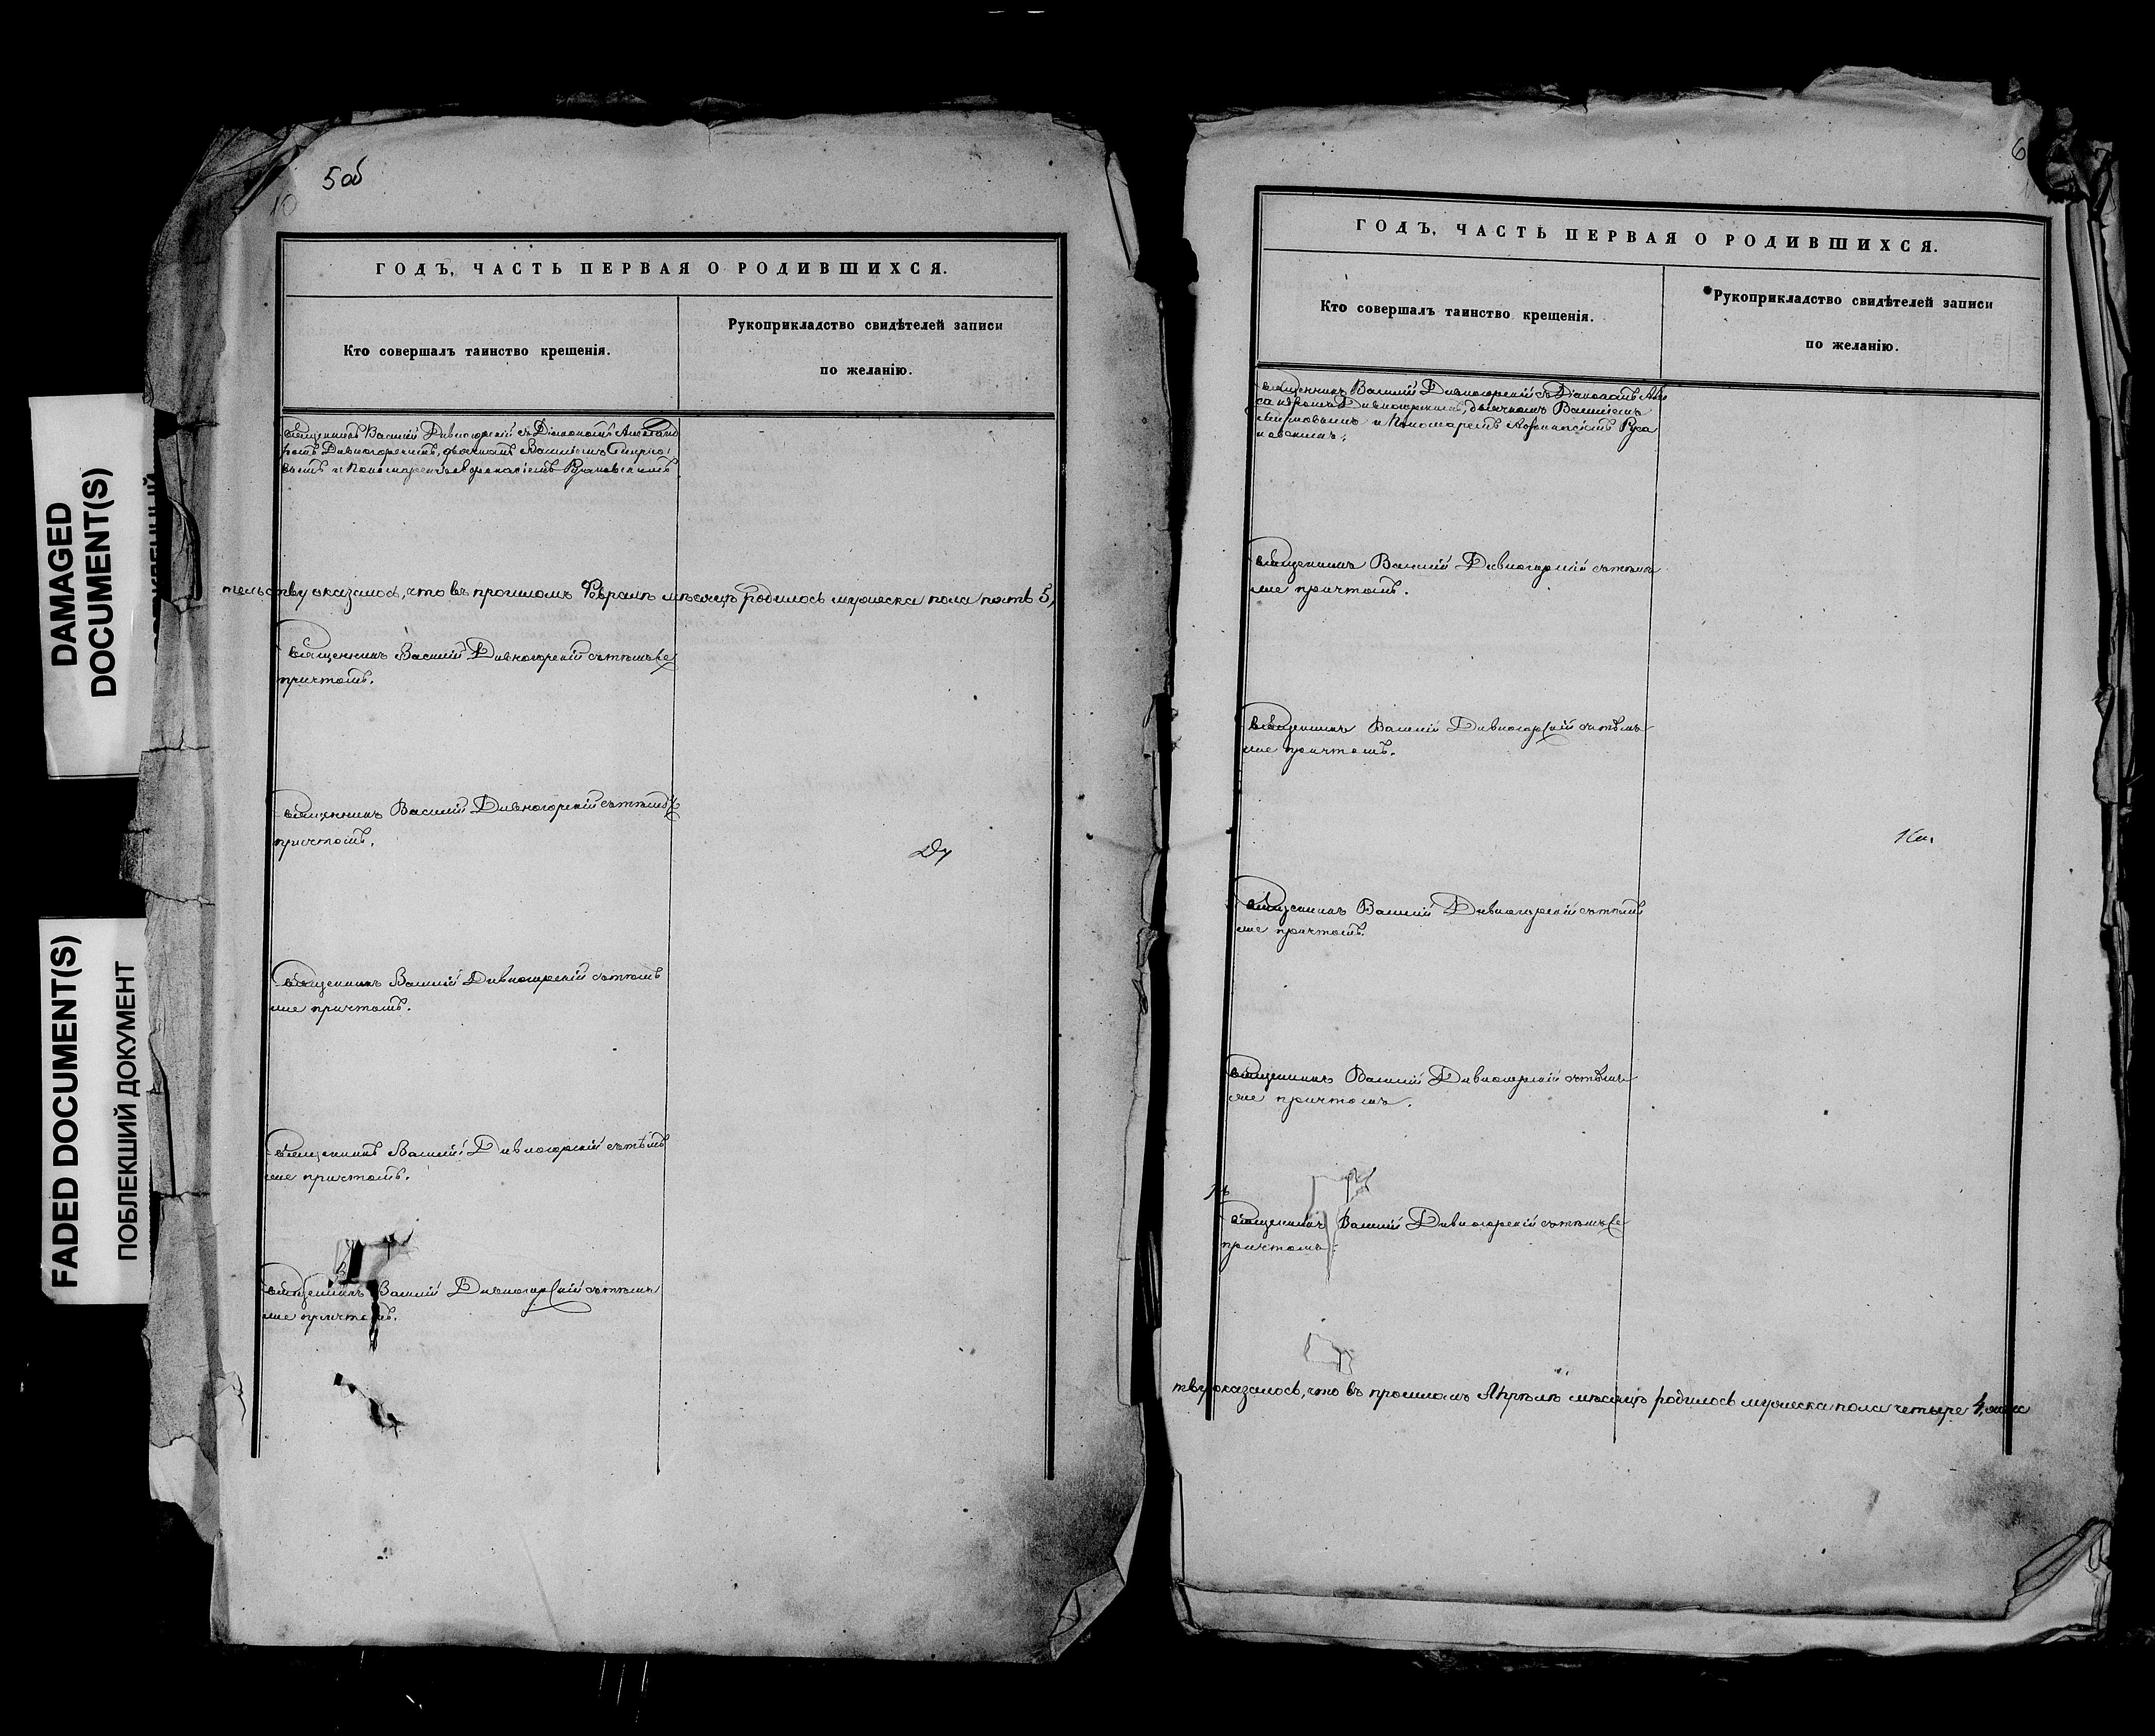 DAMAGED
DOCUMENT(S)
FADED DOCUMENT(S)
ПОБЛЕКШИЙ ДОКУМЕНТ
5 об
10
ГОДЪ, ЧАСТЬ ПЕРВАЯ О РОДИВШИХСЯ.
Кто совершалъ таинство крещенія.
Рукоприкладство свидѣтелей записи
по желанію.
Священникъ Василій Дивногорскій съ Діакономъ Александ
ромъ Дивногорскимъ, дьячкомъ Василіемъ Смирно
вымъ и Пономаремъ Афанасіемъ Рузановскимъ
тельству оказалось, что въ прошломъ Февралѣ мѣсяцѣ родилось мужеска пола пять 5,
Священникъ Василій Дивногорскій съ тѣмъ же
причтомъ.
Священникъ Василій Дивногорскій съ тѣмъ же
причтомъ.
Ду
Священникъ Василій Дивногорскій съ тѣмъ
же причтомъ.
Священникъ Василій Дивногорскій съ тѣмъ
же причтомъ.
Священникъ Василій Дивногорскій съ тѣмъ
же причтомъ.
6
ГОДЪ, ЧАСТЬ ПЕРВАЯ О РОДИВШИХСЯ.
Кто совершалъ таинство крещенія.
Рукоприкладство свидѣтелей записи
по желанію.
Священникъ Василій Дивногорскій съ Діакономъ Алек
сандромъ Дивногорскимъ, дьячкомъ Василіемъ
Смирновымъ и Пономаремъ Афанасіемъ Руза
новскимъ.
Священникъ Василій Дивногорскій съ тѣмъ
же причтомъ.
Священникъ Василій Дивногорскій съ тѣмъ
же причтомъ.
Священникъ Василій Дивногорскій съ тѣмъ
же причтомъ.
Священникъ Василій Дивногорскій съ тѣмъ
же причтомъ.
Священникъ Василій Дивногорскій съ тѣмъ же
причтомъ.
тву оказалось, что въ прошломъ Апрѣлѣ мѣсяцѣ родилось мужеска пола четыре 4,